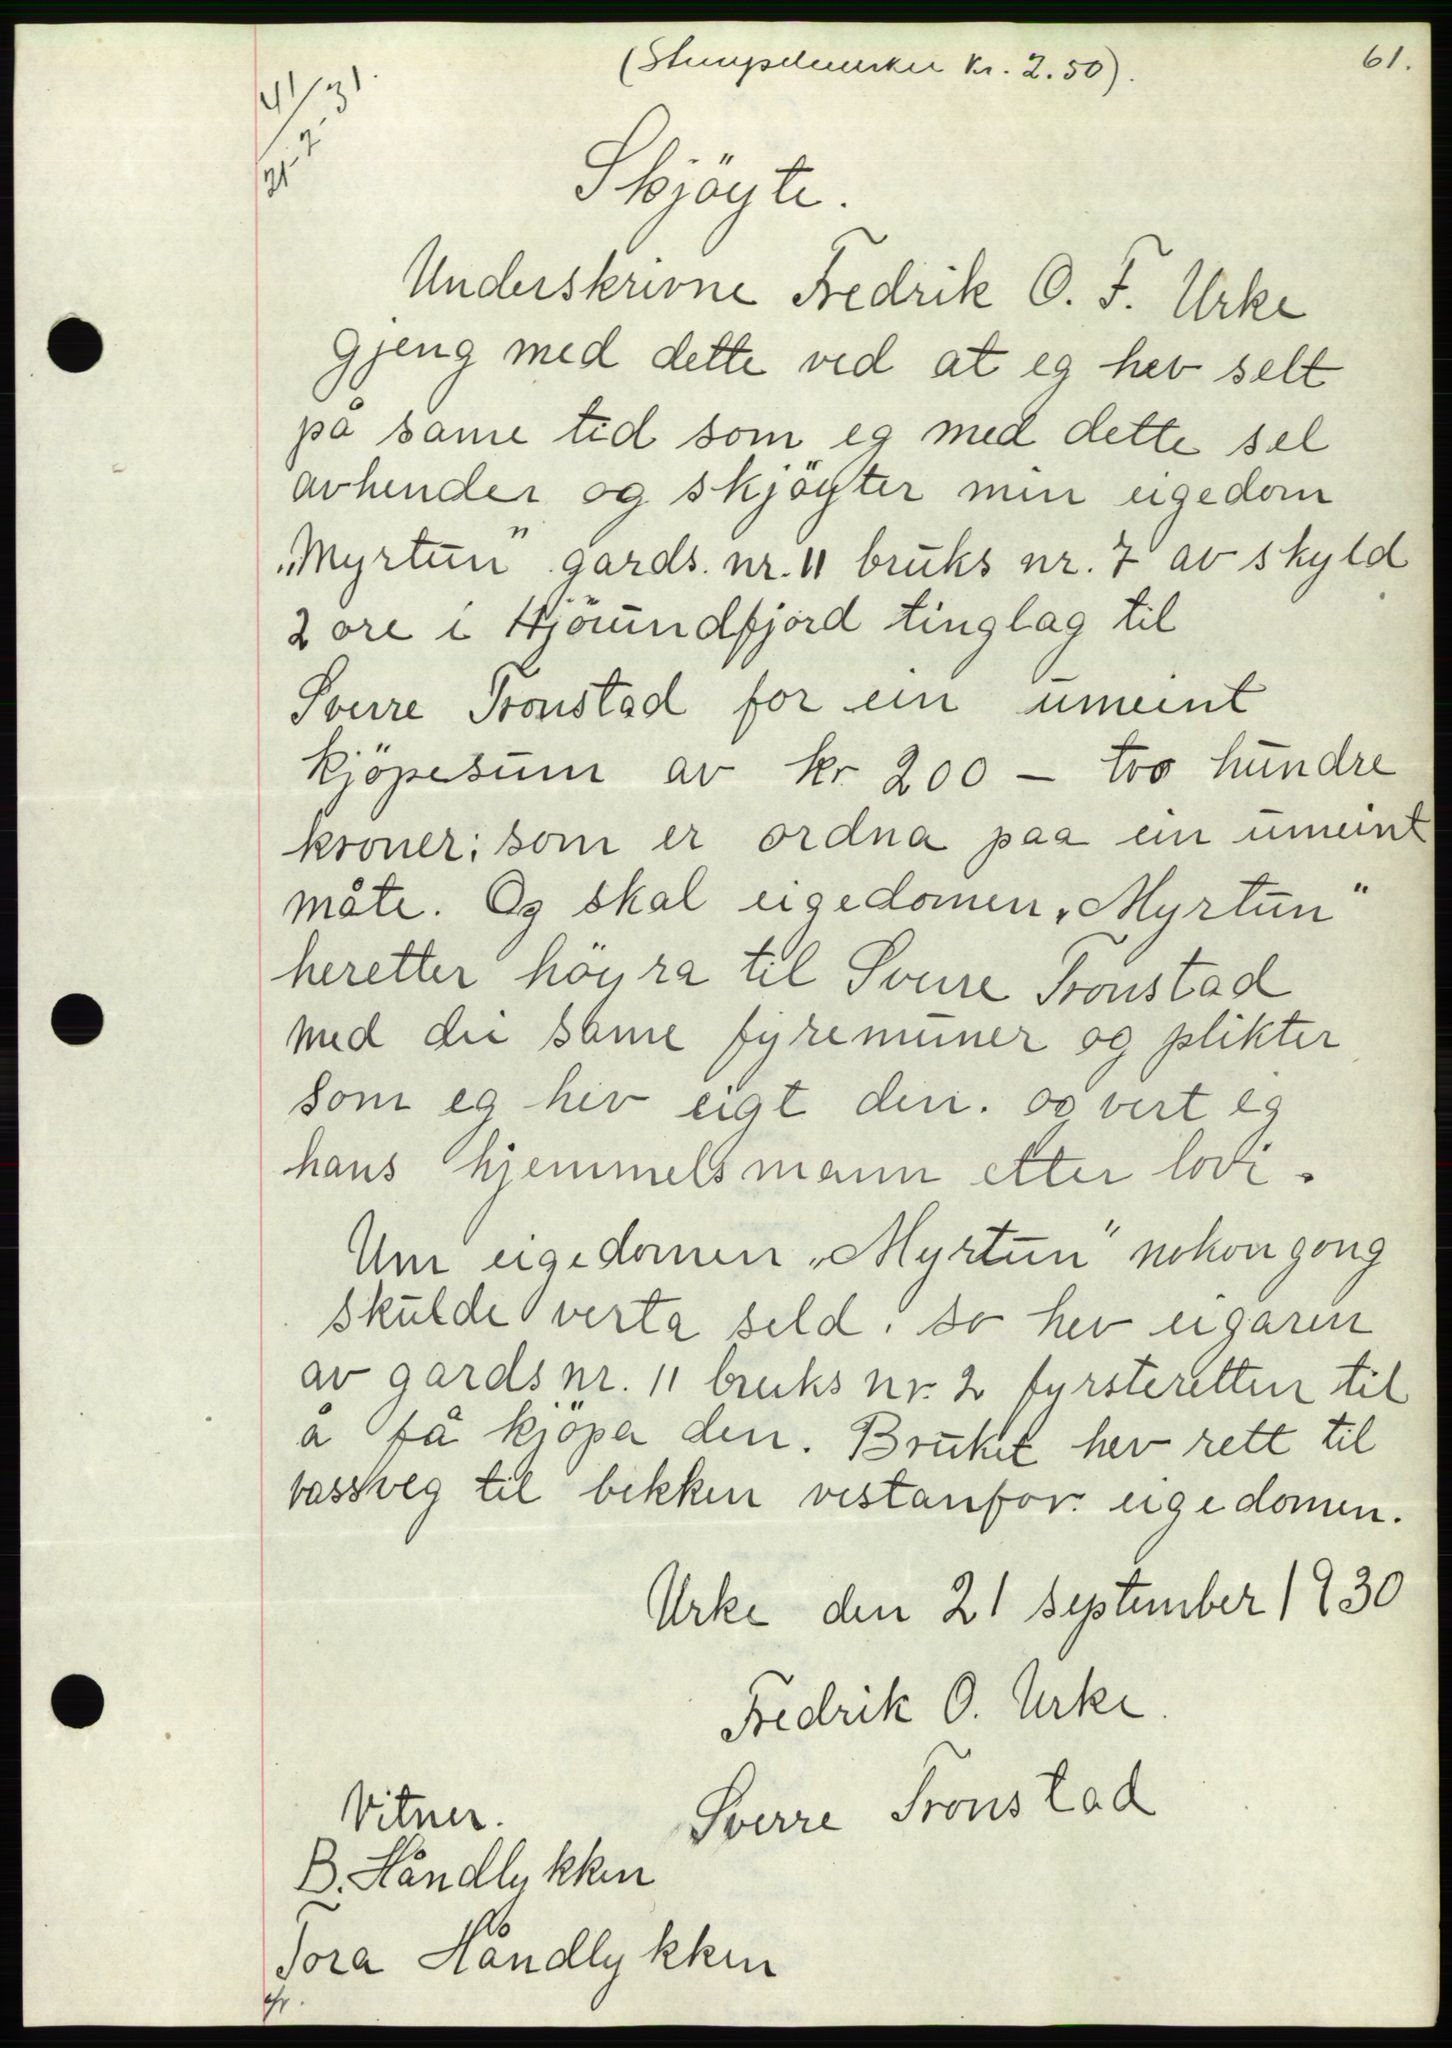 (Stempelmerker kr. 2.50).
61.
41/21-2-31.
Skjöyte.
Underskrivne Fredrik O. F. Urke
gjeng med dette ved at eg hev selt
på same tid som eg med dette sel
avhender og skjöyter min eigedom
„Myrtun" gards. nr. 11 bruks nr. 7 av skyld
2 ore i Hjörundfjord tinglag til
Sverre Tronstad for ein umeint
kjöpesum av kr 200 – tvo hundre
kroner; som er ordna paa ein umeint
måte. Og skal eigedomen „Myrtun"
heretter höyra til Sverre Tronstad
med dei same fyremuner og plikter
som eg hev eigt den. og vert eg
hans hjemmelsmann etter lovi.
Um eigedomen „Myrtun" nokon gong
skulde verta seld. so hev eigaren
av gards nr. 11 bruks nr. 2 fyrsteretten til
å få kjöpa den. Bruket hev rett til
vassveg til bekken vestanfor eigedomen.
Urke den 21 september 1930
Fredrik O. Urke.
Sverre Tronstad
Vitner.
B. Håndlykken
Tora Håndlykken